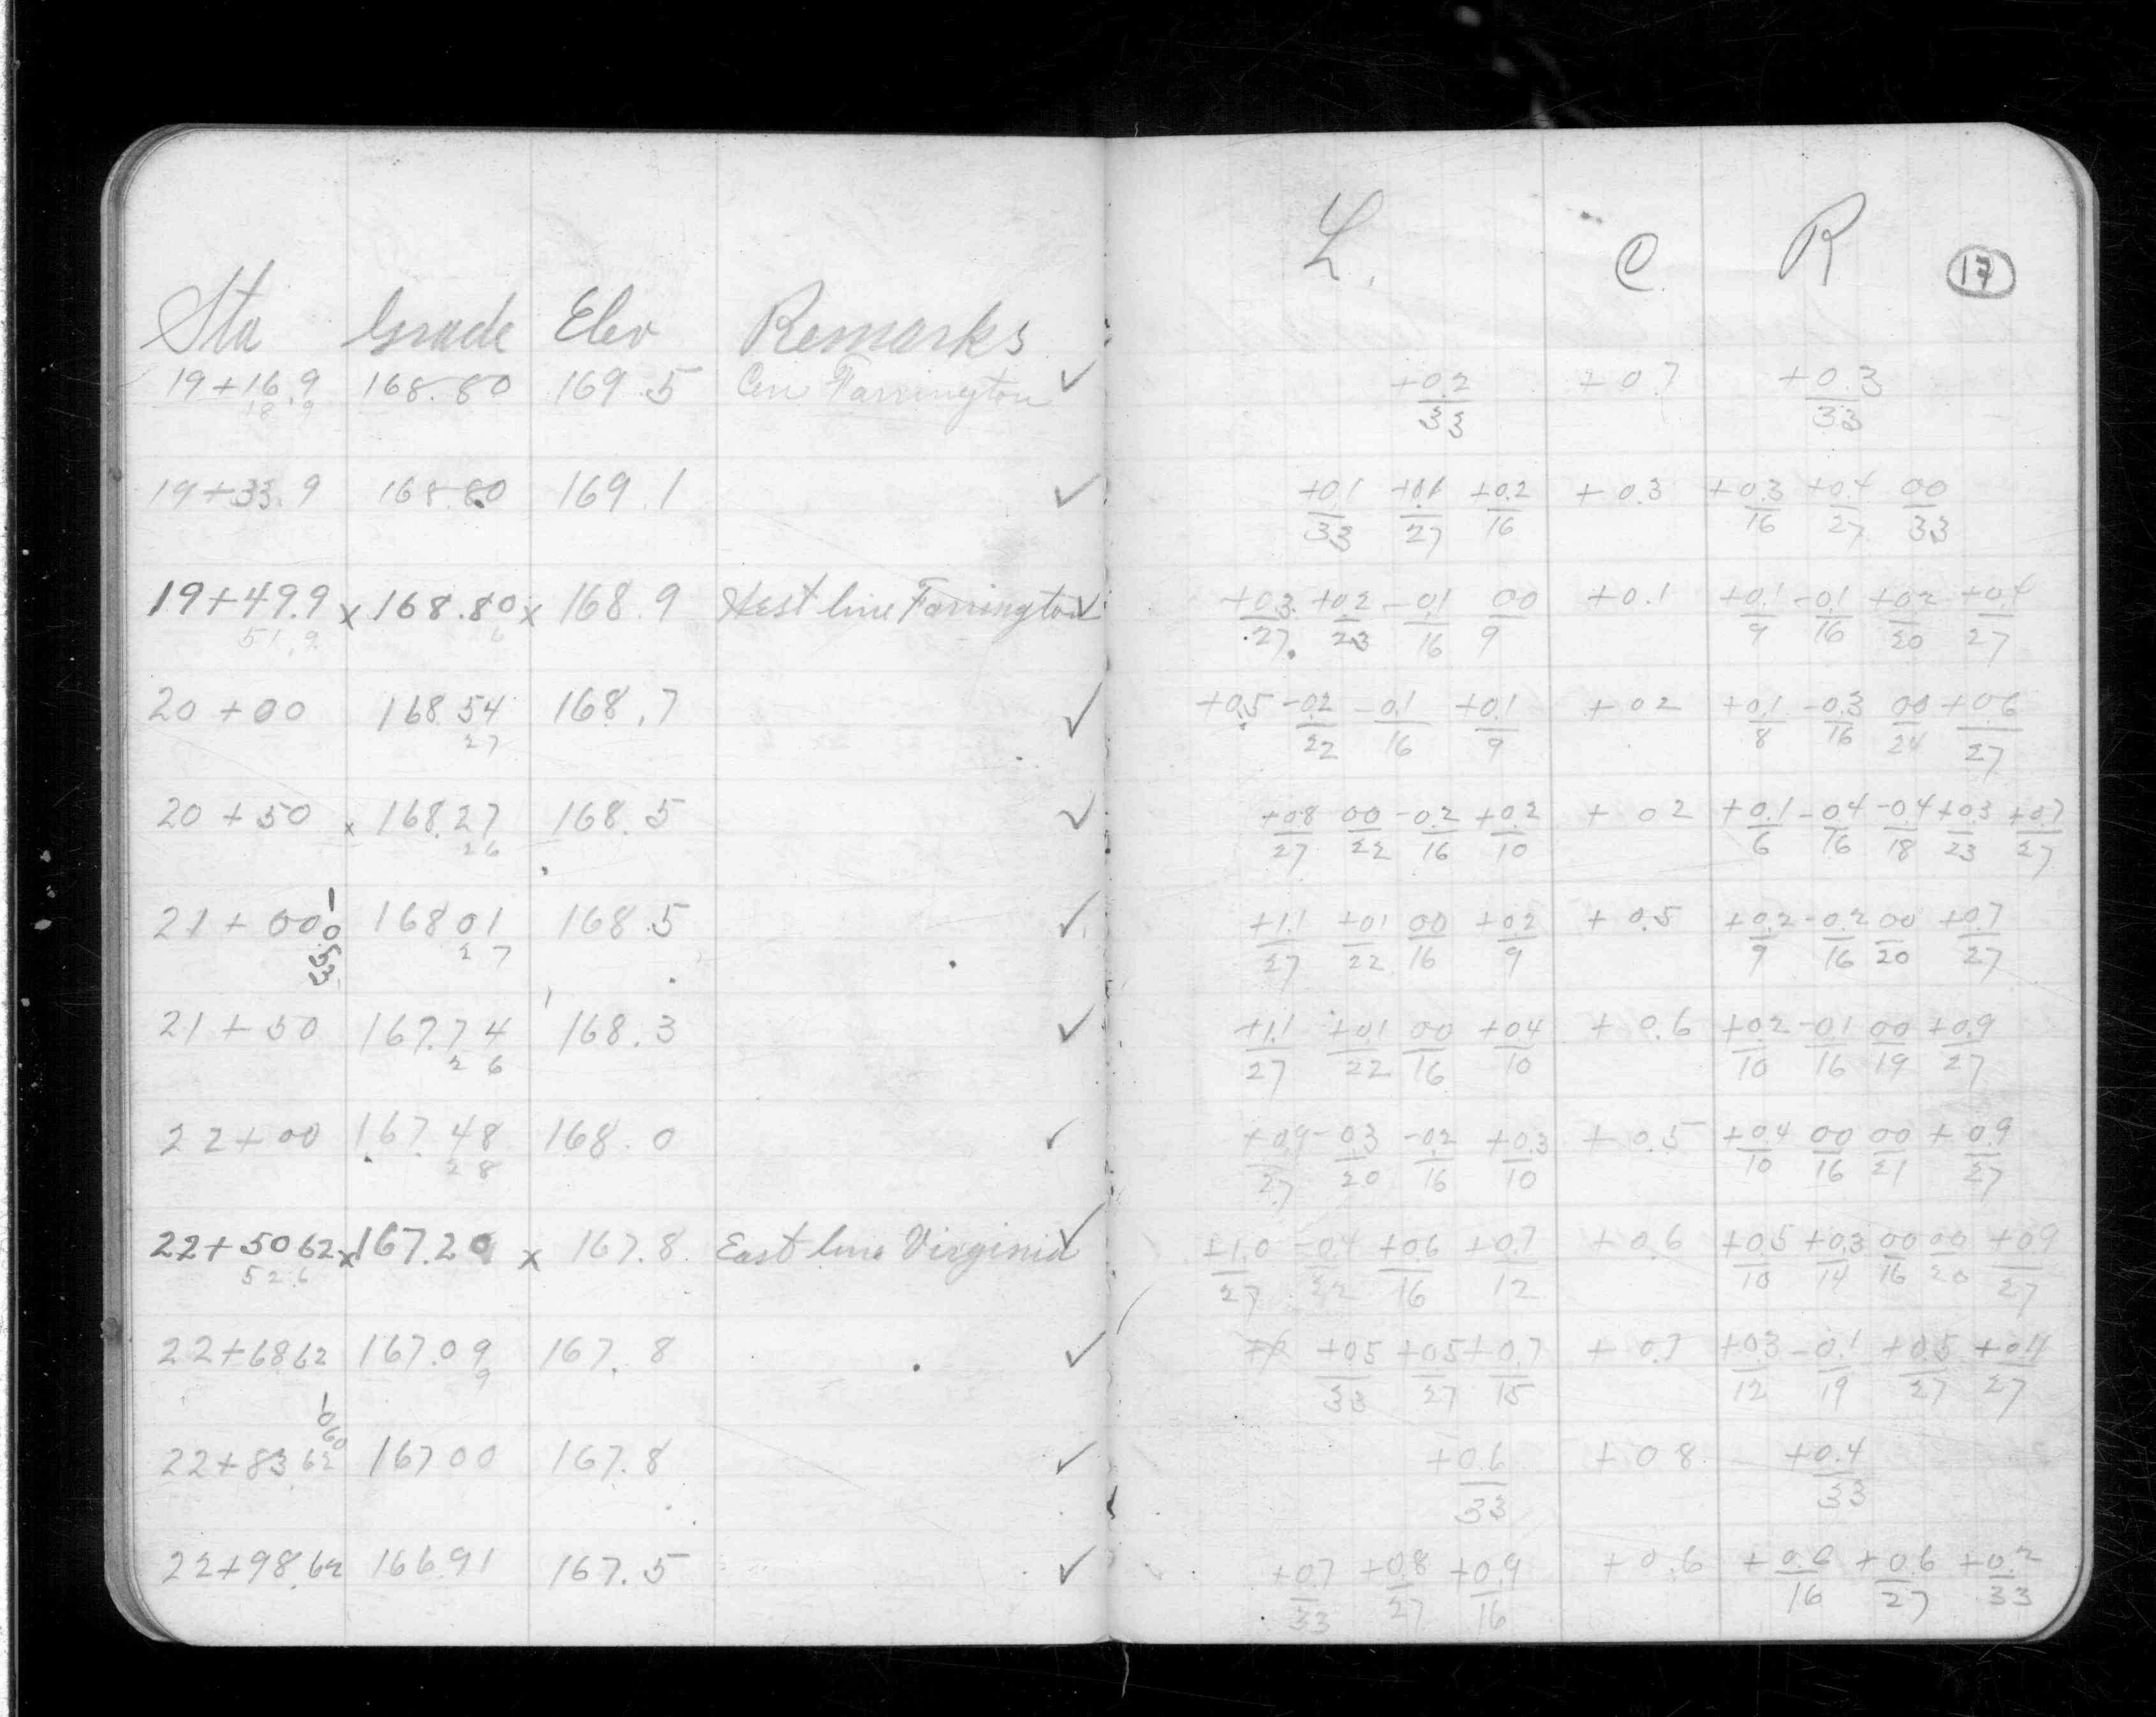 L. C. R 17
Sta Grade Elev Remarks
19+16.9 168.80 169.5 Cen Farrington ✓ +0.2/33 +0.7 +0.3/33
18.9
19+33.9 168.80 169.1 ✓ +0.1/33 +0.1/27 +0.2/16 +0.3 +0.3/16 +0.4/27 00/33
19+49.9 x 168.80 x 168.9 West line Farrington ✓ +0.3/27 +0.2/23 -0.1/16 00/9 +0.1 +0.1/9 -0.1/16 +0.2/20 +0.4/27
51.9 6
20+00 168.54 168.7 ✓ +0.5 -0.2/22 -0.1/16 +0.1/9 +0.2 +0.1/8 -0.3/16 00/24 +0.6/27
27
20+50 x 168.27 168.5 ✓ +0.8/27 00/22 -0.2/16 +0.2/10 +0.2 +0.1/6 -0.4/16 -0.4/18 +0.3/23 +0.7/27
26
21+00 168.01 168.5 ✓ +1.1/27 +0.1/22 00/16 +0.2/9 +0.5 +0.2/9 -0.2/16 00/20 +0.7/27
27
21+50 167.74 168.3 ✓ +1.1/27 +0.1/22 00/16 +0.4/10 +0.6 +0.2/10 -0.1/16 00/19 +0.9/27
26
22+00 167.48 168.0 ✓ +0.9/27 -0.3/20 -0.2/16 +0.3/10 +0.5 +0.4/10 00/16 00/21 +0.9/27
28
22+50.62 x 167.20 x 167.8 East line Virginia ✓ +1.0/27 -0.4/22 +0.6/16 +0.7/12 +0.6 +0.5/10 +0.3/14 00/16 00/20 +0.9/27
52.6
22+68.62 167.09 167.8 ✓ +0.5/33 +0.5/27 +0.7/15 +0.7 +0.3/12 -0.1/19 +0.5/27 +0.4/27
9
22+83.62 167.00 167.8 ✓ +0.6/33 +0.8 +0.4/33
22+98.62 166.91 167.5 ✓ +0.7/33 +0.8/27 +0.9/16 +0.6 +0.6/16 +0.6/27 +0.2/33